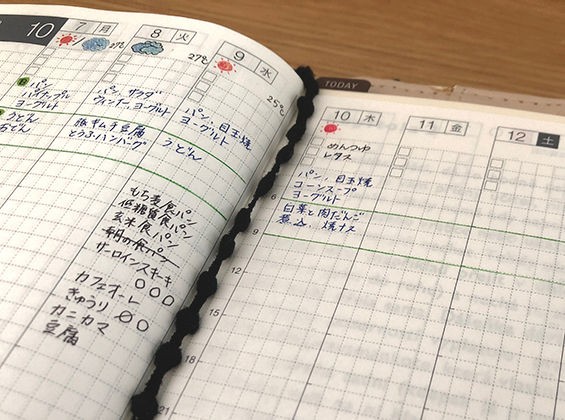 10
7 月
27℃
パン
パイナップル
ヨーグルト
うどん
おでん
8 火
27℃
パン、サラダ
ウィンナー、ヨーグルト
豚キムチ豆腐
とうふハンバーグ
9 水
25℃
パン、目玉焼
ヨーグルト
うどん
もち麦食パン
低糖質食パン
玄米食パン
サーロインステーキ
カフェオーレ
きゅうり
カニカマ
豆腐
TODAY
10 木
めんつゆ
レタス
パン、目玉焼
コーンスープ
ヨーグルト
白菜と肉だんご
煮込、焼ナス
11 金
12 土
6
9
12
15
18
21